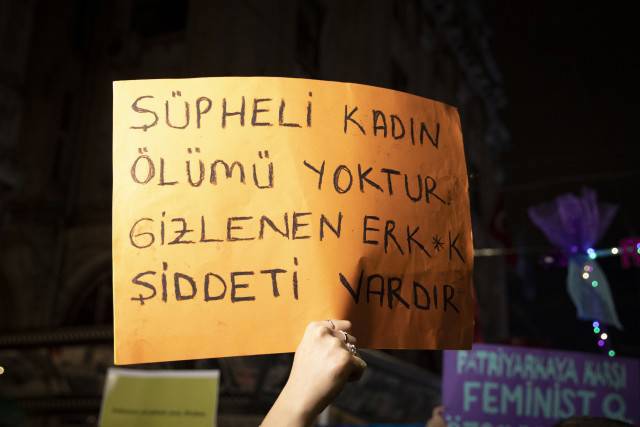 ŞÜPHELİ KADIN
ÖLÜMÜ YOKTUR.
GİZLENEN ERK*K
ŞİDDETİ VARDIR
PATRİYARKAYA KARŞI
FEMİNİST